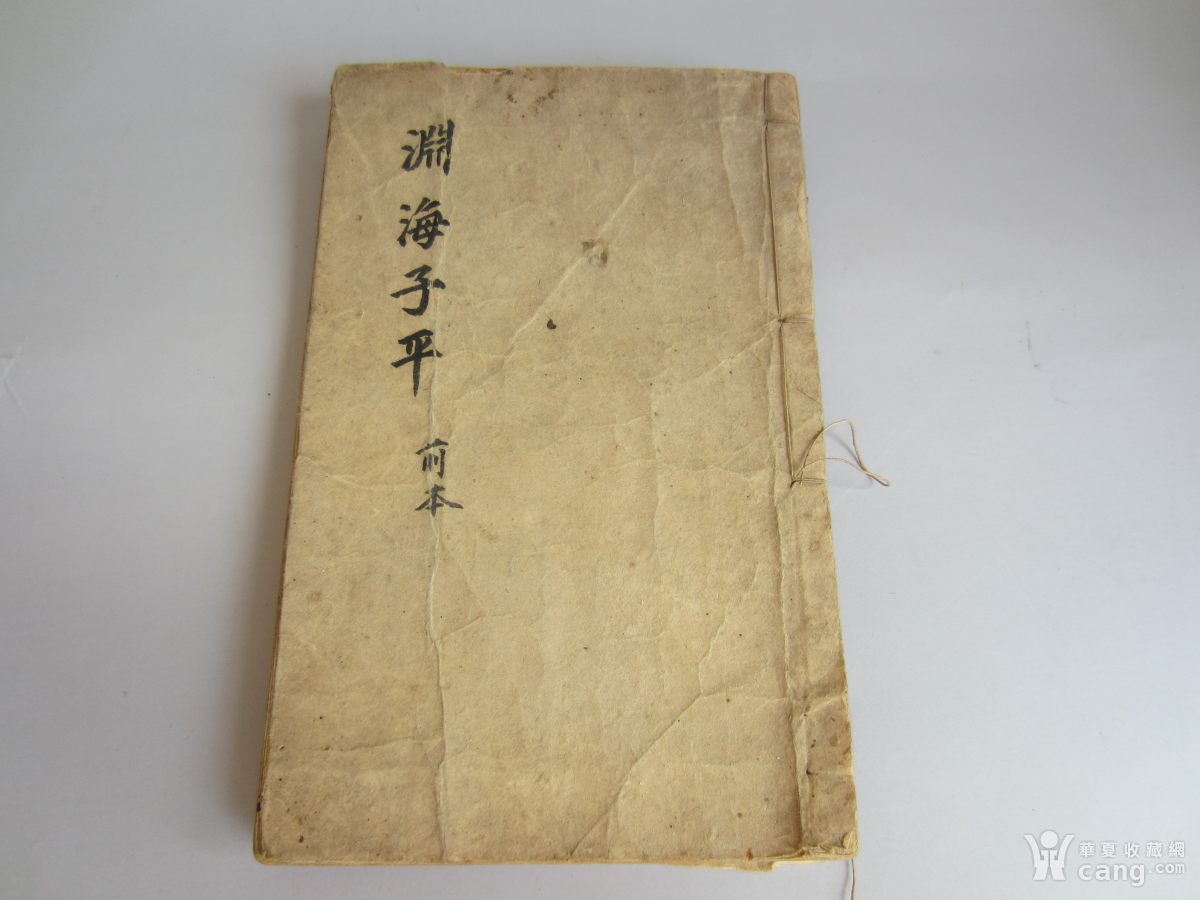 淵海子平
前本
華夏收藏網
cang.com